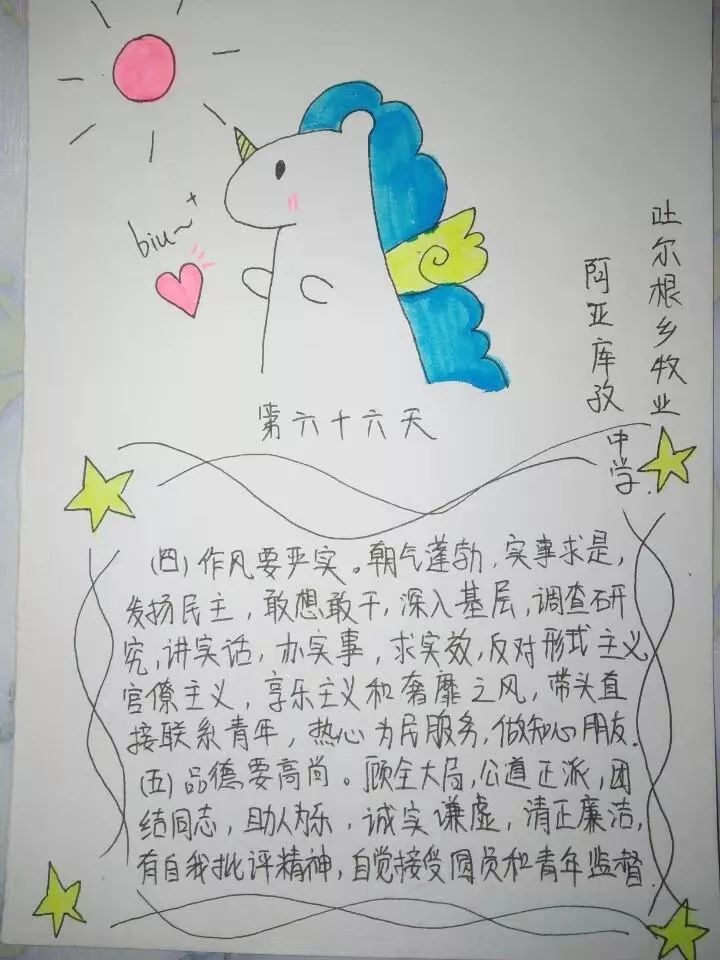 biu~+
吐尔根乡牧业
中学.
阿亚库孜
第六十六天
(四)作风要严实。朝气蓬勃,实事求是,
发扬民主,敢想敢干,深入基层,调查研
究,讲实话,办实事,求实效,反对形式主义
官僚主义,享乐主义和奢靡之风,带头直
接联系青年,热心为民服务,做知心朋友.
(五)品德要高尚。顾全大局,公道正派,团
结同志,助人为乐,诚实谦虚,清正廉洁,
有自我批评精神,自觉接受团员和青年监督.